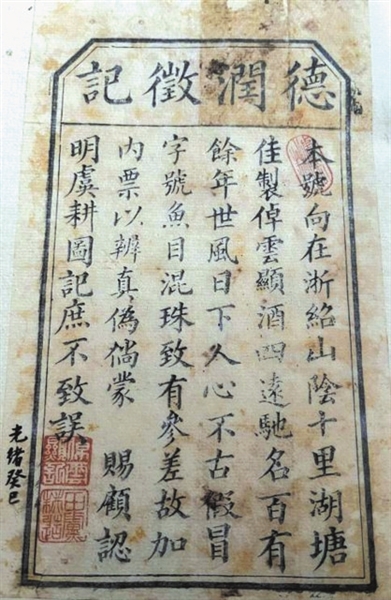 德潤徵記
本號向在浙紹山陰十里湖塘
佳製倬雲顯酒四遠馳名百有
餘年世風日下人心不古假冒
字號魚目混珠致有參差故加
內票以辨真偽倘蒙 賜顧認
明虞耕圖記庶不致誤
光緒癸巳